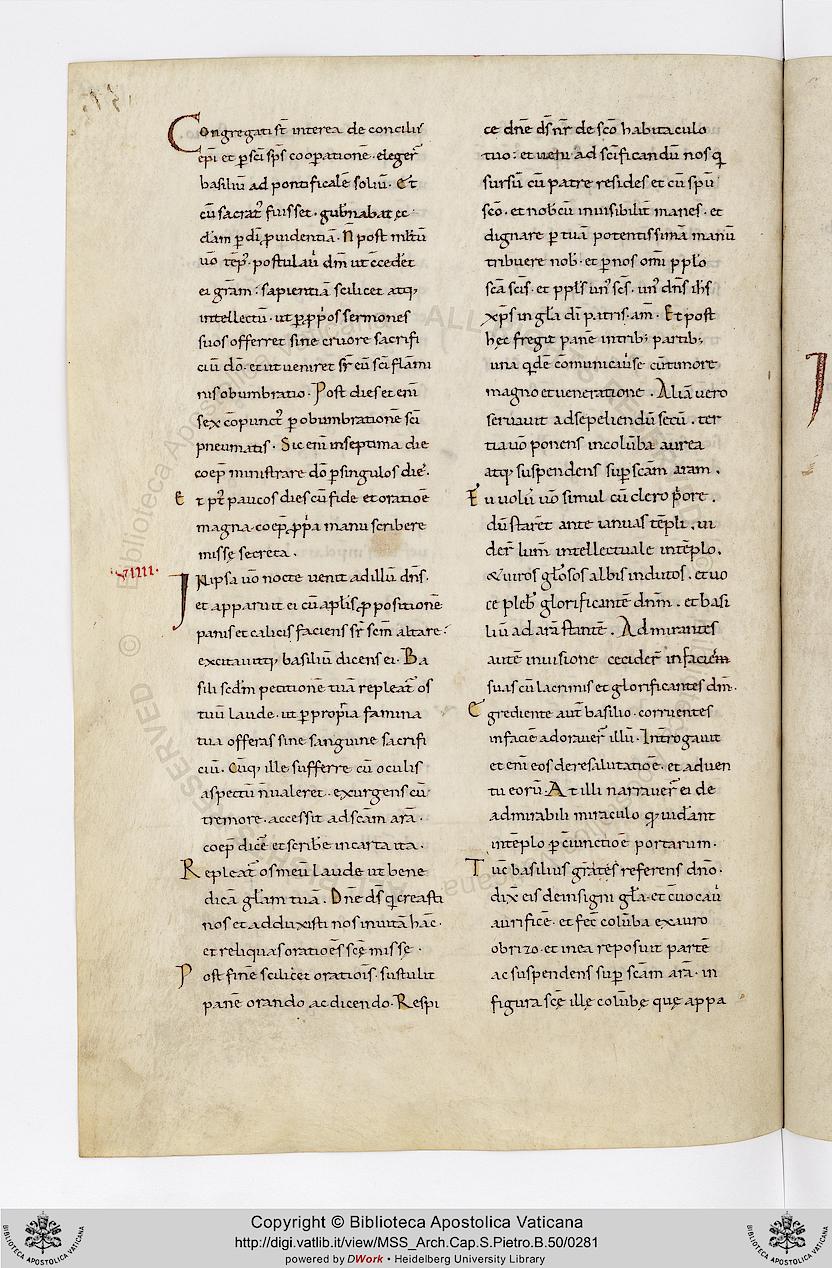 Congregati st̄ interea de conciliis
ep̄i et p̄ sc̄i sp̄s cooperatione · eleger̄
basiliū ad pontificalē soliū · Et
cū sacrat᷒ fuisset · gub̄nabat ec
clam p̄ di p̄uidentiā · N̄ post mltū
uō tēp᷒ · postulau̇ dm̄ ut c̄cedet
ei grām : sapientiā scilicet atq,
intellectū · ut p̄ p̄p̄os sermones
suos offerret sine cruore sacrifi
ciū dō · et ut veniret sr̄ eū sc̄i flami
nis obumbratio · Post dies et eni̅
sex cōpunct᷒ p̄ obumbrationē sc̄i
pneumatis · Sic eni̅ in septima die
coep̄ ministrare dō p̄ singulos die᷒ ·
Et pt᷒ paucos dies cū fide et oratioē
magna · coep̄ p̄p̄a manu scribere
missę secreta .
·VIIII·
IN ipsa uō nocte venit ad illū dn̄s ·
et apparuit ei cū aplis p̄positionē
panis et calicis faciens sr̄ sc̄m altare :
excitauitq, basiliū dicens ei · Ba
sili scdm̄ petitionē tuā repleat᷒ os
tuū laude · ut p̄ propr̄ia famina
tua offeras sine sanguine sacrifi
ciū · Cūq, ille sufferre cū oculis
aspectū n̄ ualeret · exurgens cū
tremore · accessit ad scam arā ·
coep̄ dicē et scribē in carta ita ·
Repleat᷒ os meū laude ut bene
dicā glam̄ tuā · Dn̄e ds̄ q̇ creasti
nos et adduxisti nos in uitā hāc ·
et reliquas oratioēs scę missę ·
Post finē scilicet oratiois̄ · sustulit
panē orando ac dicendo · Respi
ce dn̄e ds̄ nr̄ de scō habitaculo
tuo : et ueni ad sc̄ificandū nos q̇
sursū cū patre resides et cū spū
scō · et nob̄cū inuisibilit̄ manes · et
dignare p̄ tuā potentissimā manū
tribuere nob̄ · et p̄ nos omi̅ pplo
sc̄a sc̄is · et ppls̄ un᷒ sc̄s · un᷒ dn̄s ih̄s
xp̄s in gla di̅ patris · am̄ · Et post
hęc fregit panē in trib; partib;
una q̇dē cōmunicau̇se cū timore
magno et ueneratione · Aliā uero
seruauit ad sepeliendū secū · ter
tiā uō ponens in colūba aurea
atq, suspendens sup̄ scam aram .
Eu uolu᷒ uō simul cū clero p̄ore .
dū staret ante ianuas tēpli . ui
der̄ lum̄ intellectuale in tēplo .
& uiros glosos albis indutos . et uo
ce pleb᷒ glorificantē dnm̄ . et basi
liū ad arā stantē . Admirantes
autē in uisione cecider̄ in faciem
suas cū lacrimis et glorificantes dm̄ .
Egrediente aut̄ basilio · corruentes
in faciē adorauer̄ illū · Introgauit
et eni̅ eos de resalutatioē · et aduen
tu eorū · At illi narrauer̄ ei de
admirabili miraculo q, uidant
in tēplo p̄ c̄iunctioē portarum ·
Tūc basilius grates referens dno̅ ·
dix̄ eis de insigni gla · et c̄uocau̇
aurificē · et fec̄ colūba ex auro
obrizo · et in ea reposuit partē
ac suspendens sup̄ scam arā · in
figura scę illę colūbę quę appa
Copyright © Biblioteca Apostolica Vaticana
http://digi.vatlib.it/view/MSS_Arch.Cap.S.Pietro.B.50/0281
powered by DWork • Heidelberg University Library